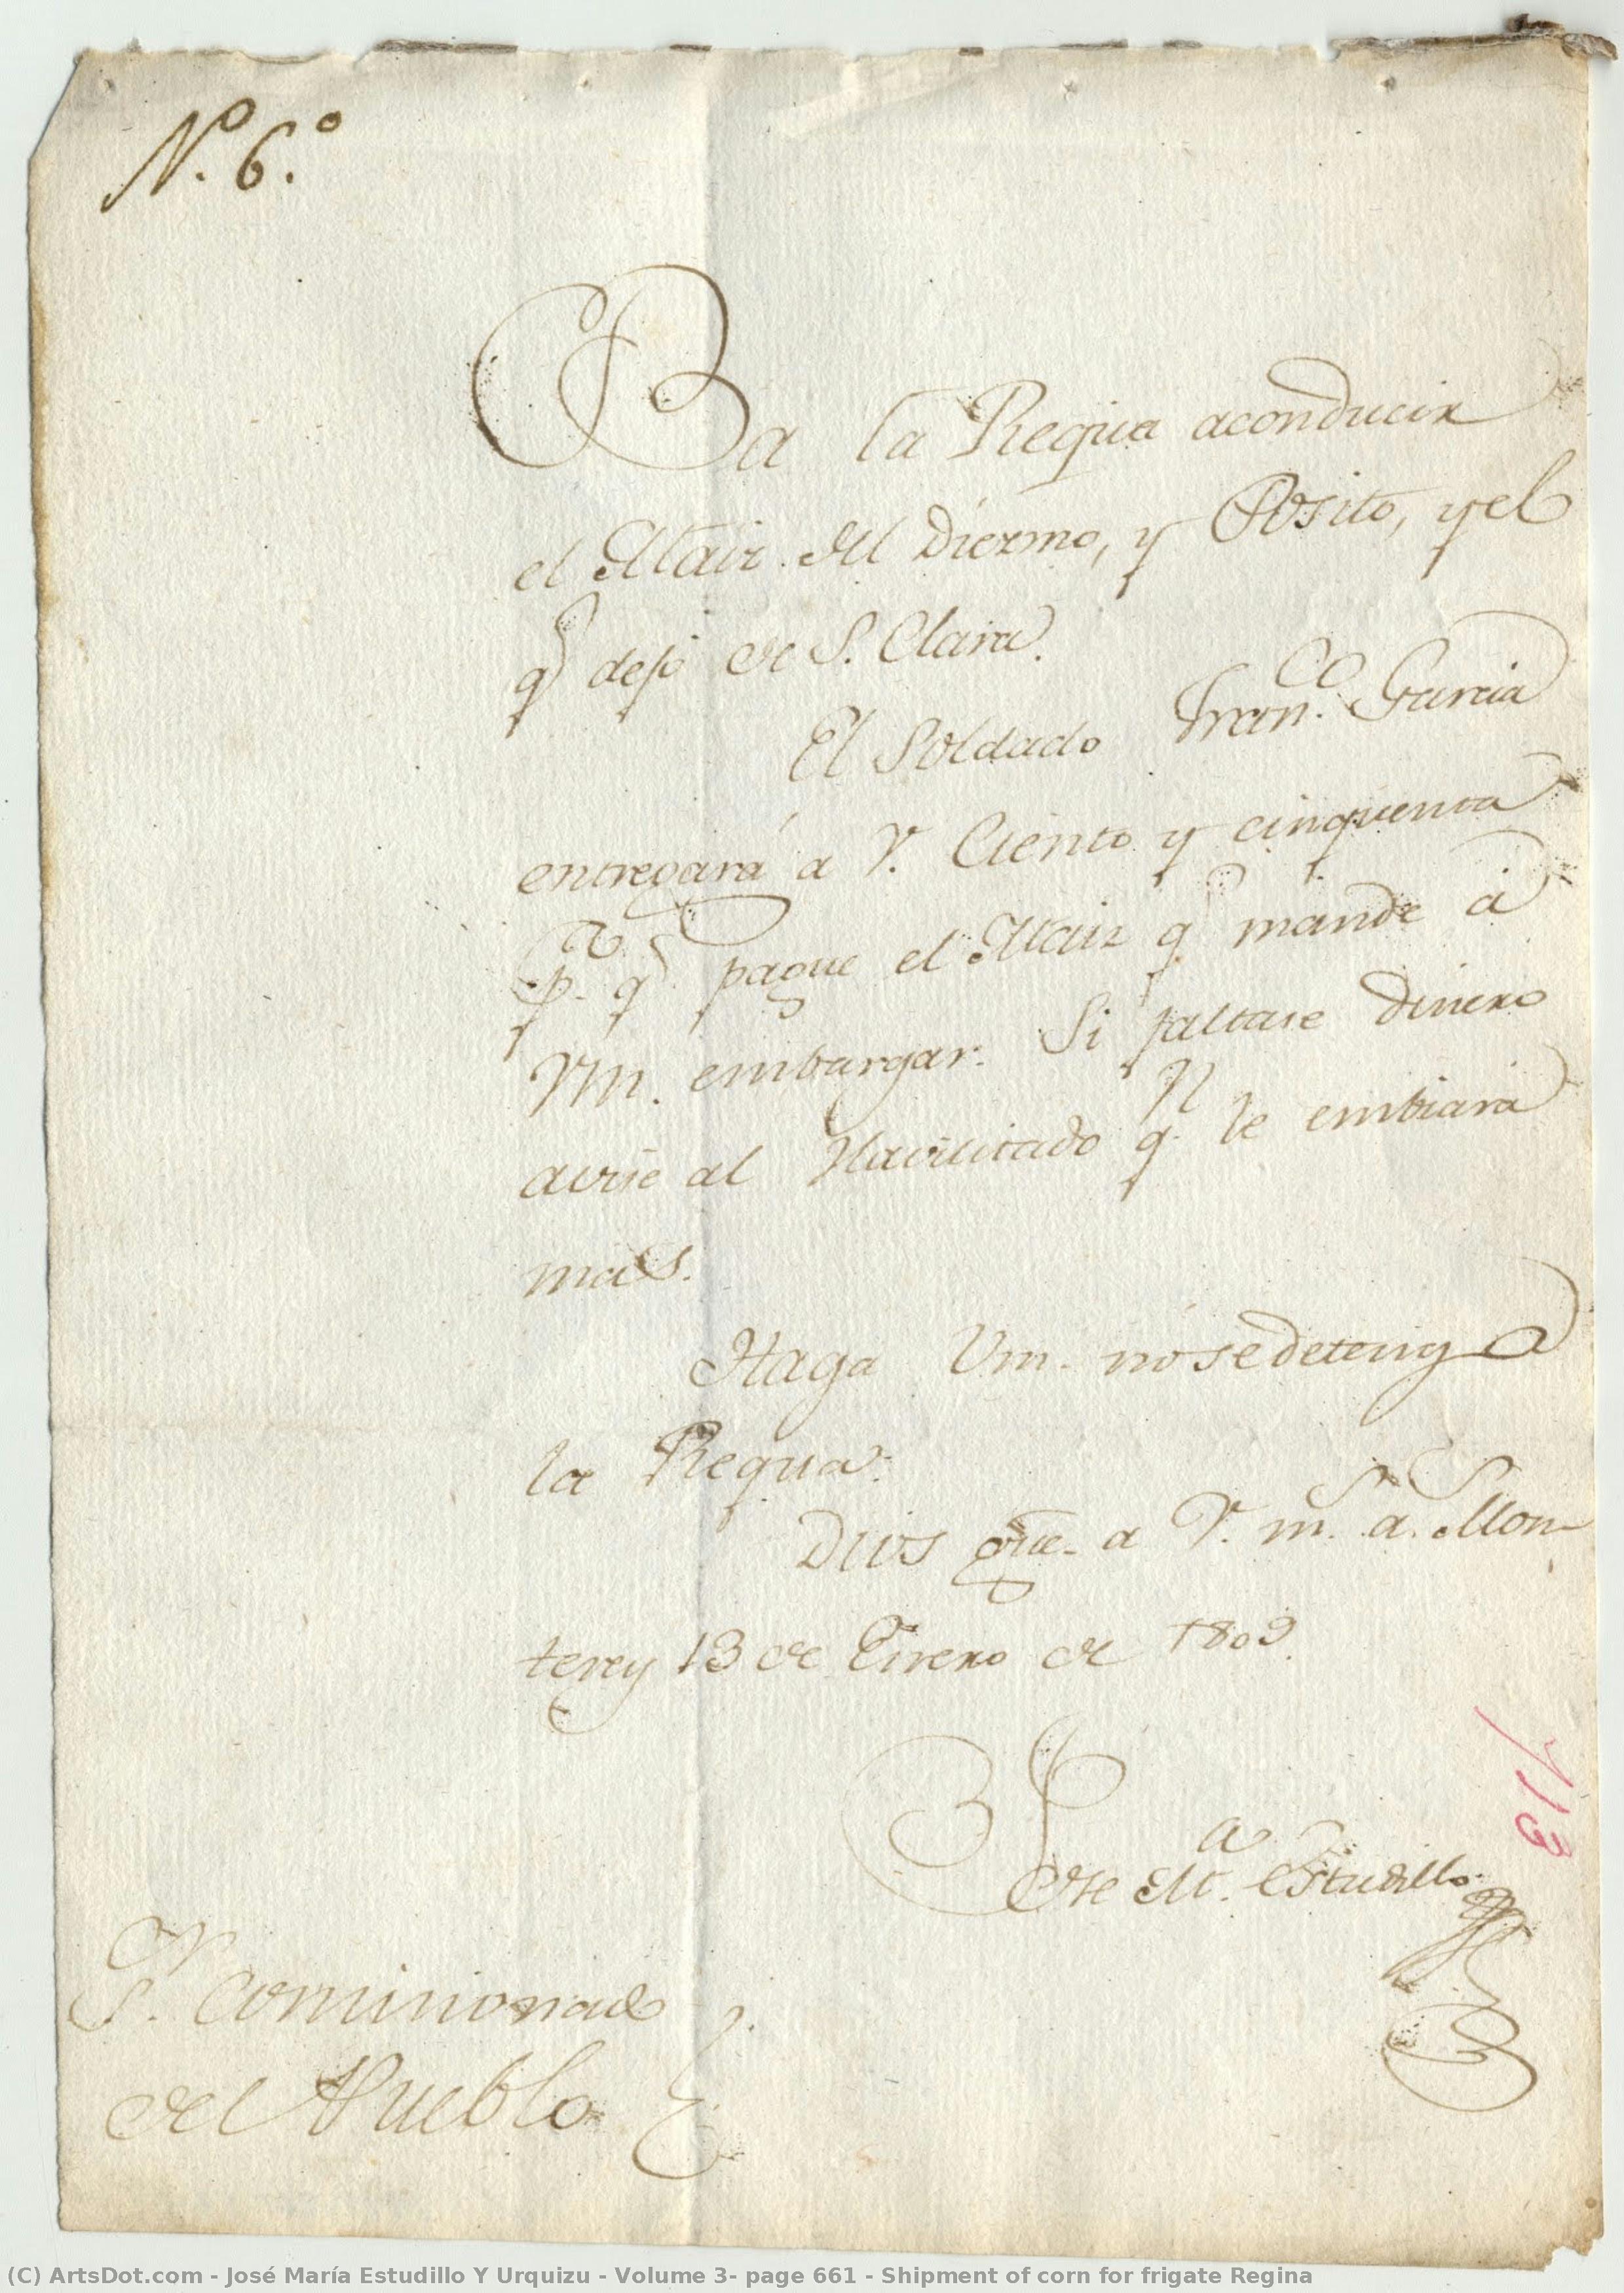 N.º 6.º
Ba la Requa aconducir
el Maiz del Diezmo, y Posito, yel
q.e dejó de S. Clara.
El Soldado Fran.co Garcia
entregará a V. Ciento y cinquenta
p.a q.e pague el Maiz q.e mandé á
Vm. embargar. Si faltase dinero
avise al Havilitado q.n le embiará
mas.
Haga Vm. nosedetenga
la Requa.
Dios gue. a V. m.s a.s Mon-
terey 13 de Enero de 1809.
Jose M.a Estudillo
S.r Comisionado
del Pueblo
713
(C) ArtsDot.com - José María Estudillo Y Urquizu - Volume 3- page 661 - Shipment of corn for frigate Regina